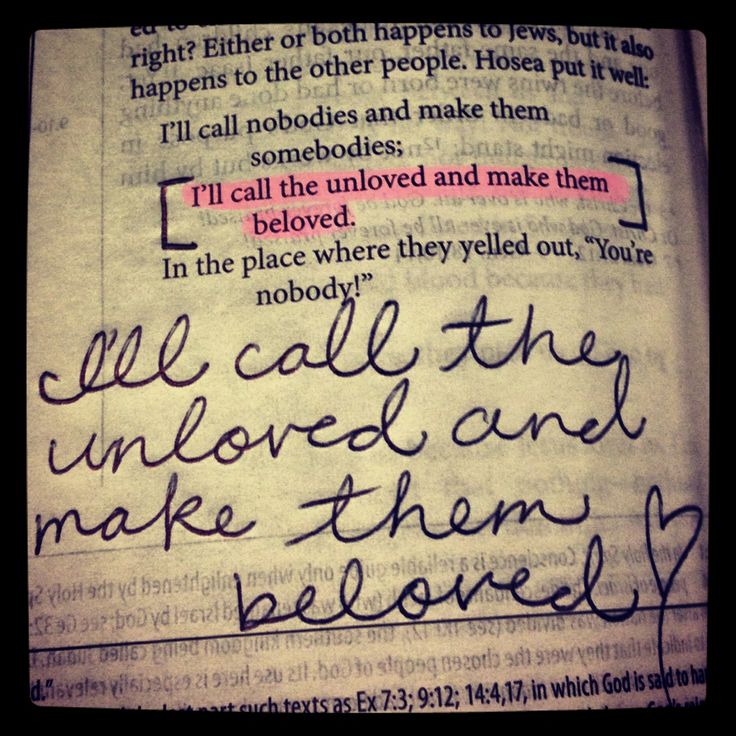 right? Either or both happens to Jews, but it also
happens to the other people. Hosea put it well:
I'll call nobodies and make them
somebodies;
I'll call the unloved and make them
beloved.
In the place where they yelled out, "You're
nobody!"
I'll call the
unloved and
make them
beloved
d."
such texts as Ex 7:3; 9:12; 14:4,17, in which God is said to